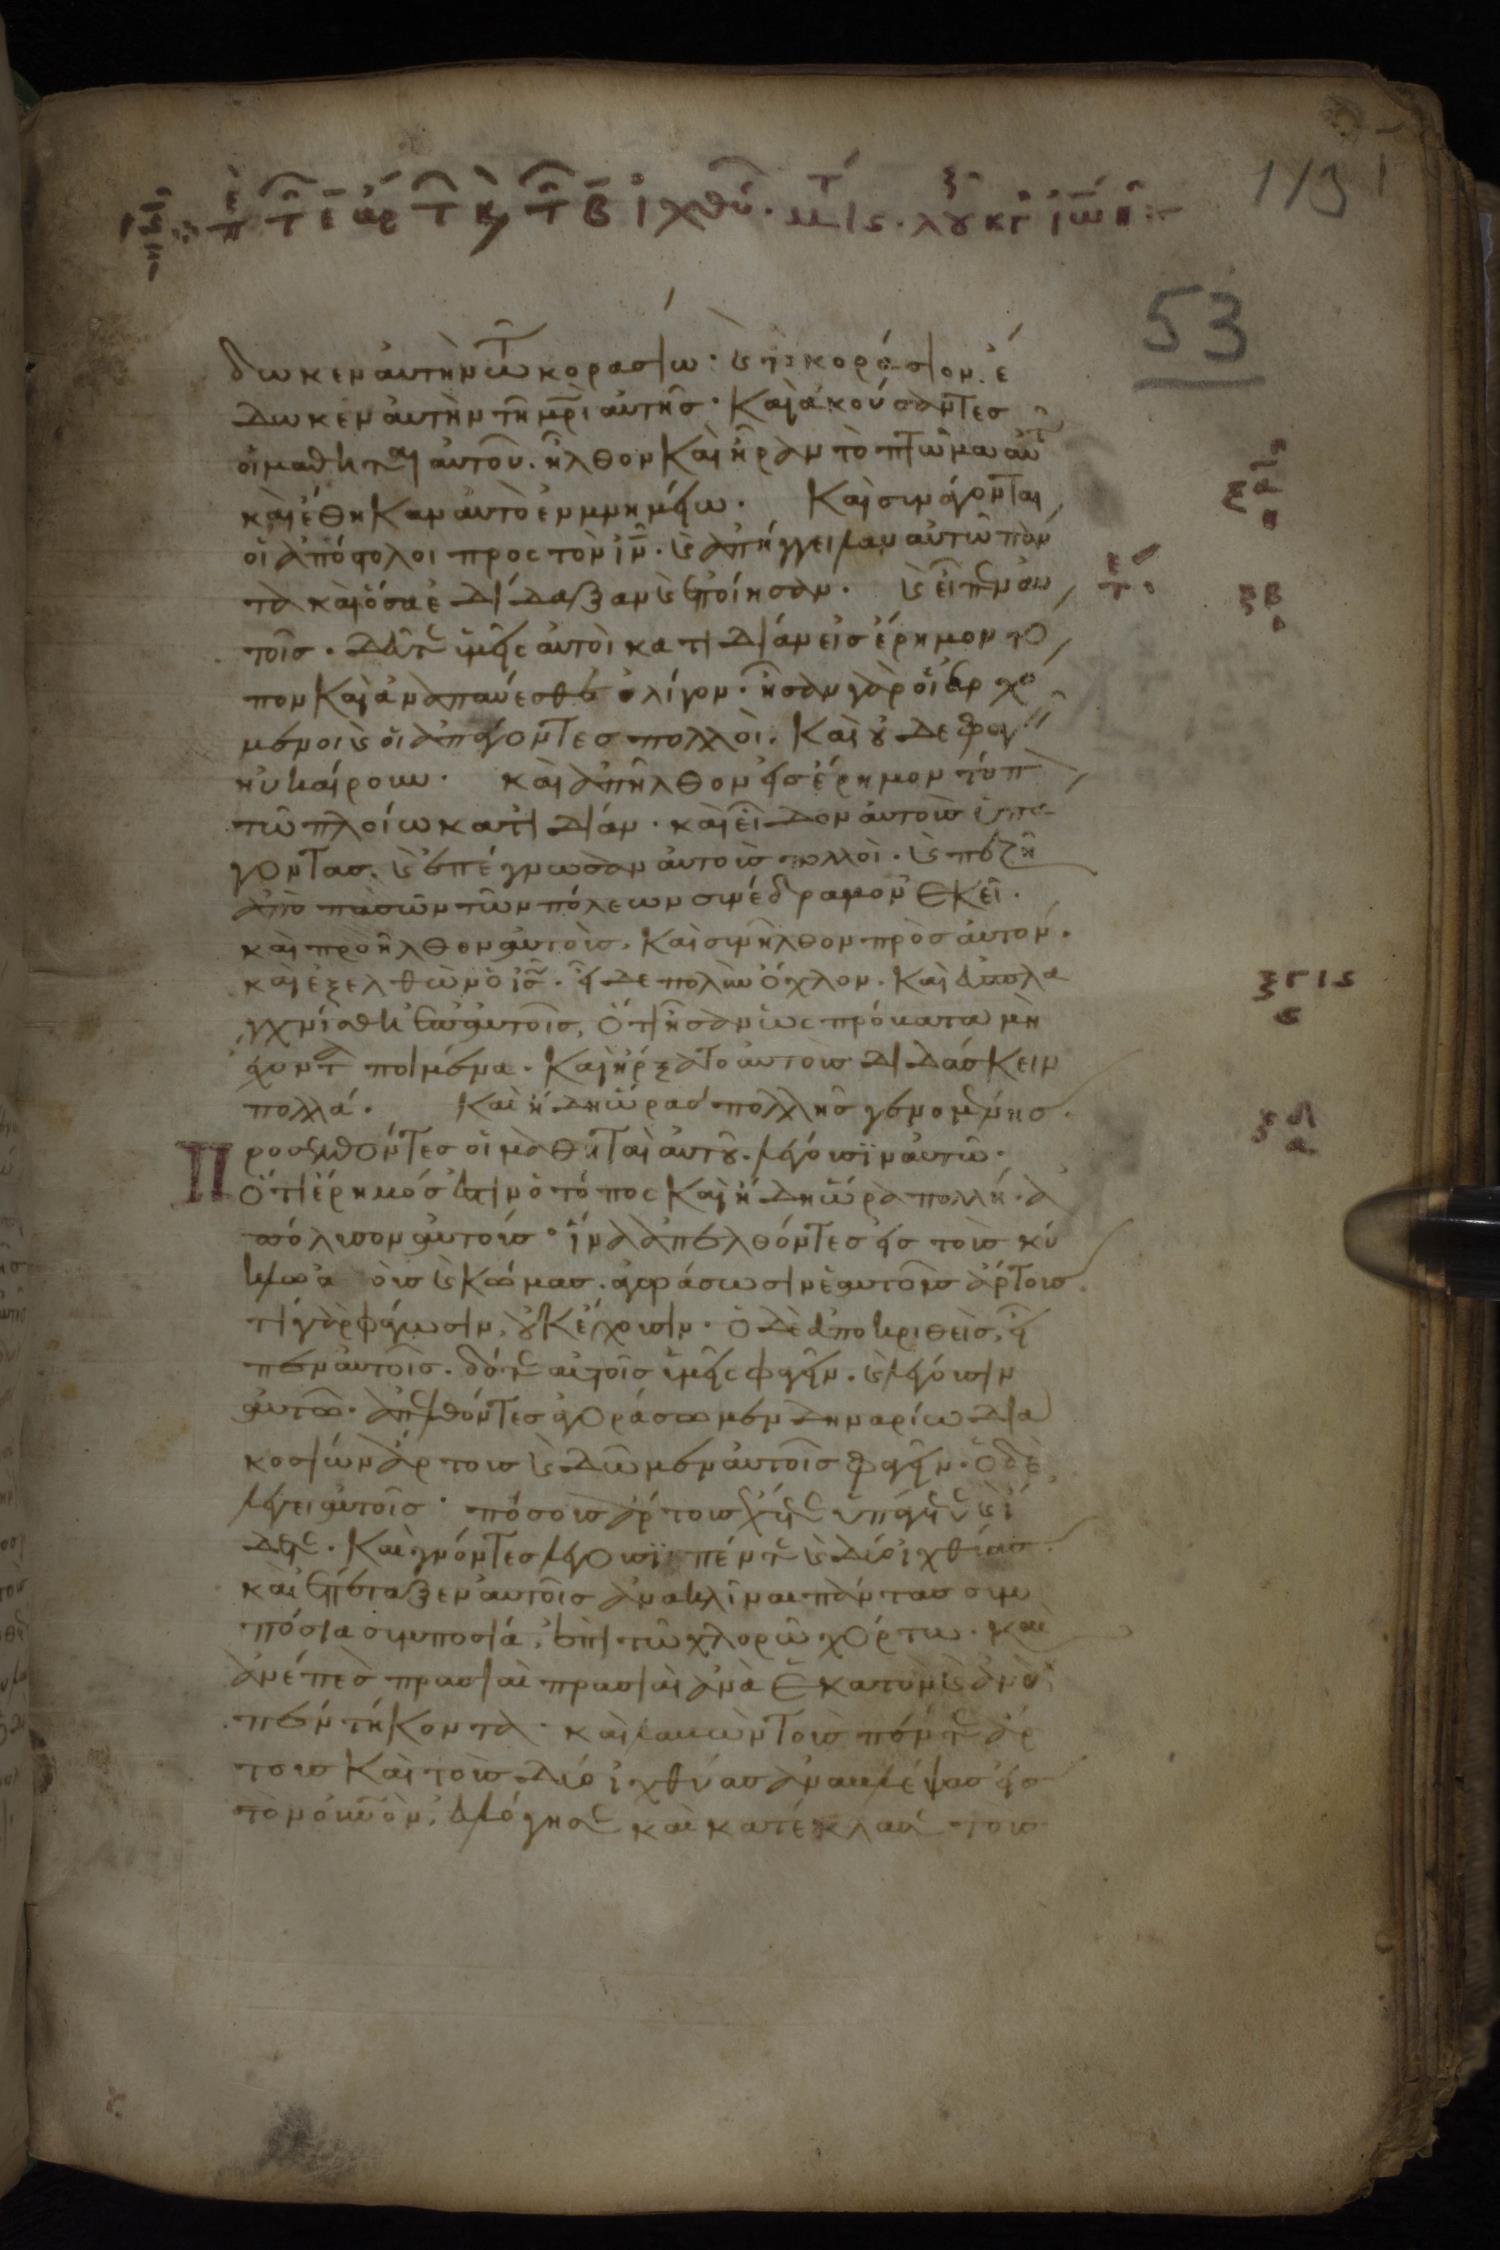 113
53
δωκεν αὐτὴν τῶ κορασίω· καὶ τὸ κοράσιον ἔ
δωκεν αὐτὴν τῆ μρὶ αὐτῆς· Καὶ ἀκούσαντες
οἱ μαθηταὶ αὐτοῦ. ἦλθον Καὶ ἦραν τὸ πτῶμα αὐτ
καὶ ἔθηκαν αὐτὸ ἐν μνημείω. Καὶ συνάγονται
οἱ ἀπόστολοι πρὸς τὸν ιν. καὶ ἀπήγγειλαν αὐτῶ πάν
τα καὶ ὅσα ἐδίδαξαν καὶ ἐποίησαν. καὶ εἶπεν αὐ
τοῖς. Δεῦτε ὑμεῖς αὐτοὶ κατιδίαν εἰς ἔρημον τό
πον Καὶ ἀναπαύεσθε ὀλίγον· ἦσαν γὰρ οἱ ἐρχό
μενοι καὶ οἱ ὑπάγοντες πολλοὶ. Καὶ οὐδὲ φαγεῖν
ηὐκαίρουν. καὶ ἀπῆλθον εἰς ἔρημον τόπ
τῶ πλοίω κατιδίαν. καὶ εἶδον αὐτοὺς ὑπά
γοντας. καὶ ἐπέγνωσαν αὐτοὺς πολλοὶ. καὶ πεζῆ
ἀπὸ πασῶν τῶν πόλεων συνέδραμον Ἐκεῖ.
καὶ προῆλθον αὐτοὺς. Καὶ συνῆλθον πρὸς αὐτόν.
καὶ ἐξελθὼν ὁ ις. εἶδε πολὺν ὄχλον. Καὶ ἐσπλα
γχνίσθη ἐπ αὐτοῖς, Ὅτι ἦσαν ὡς πρόβατα μὴ
ἔχοντα ποιμένα. Καὶ ἤρξατο αὐτοὺς διδάσκειν
πολλά. Καὶ ἤδη ὥρας πολλῆς γενομένης.
Προσελθόντες οἱ μαθηταὶ αὐτοῦ. λέγουσιν αὐτῶ.
Ὅτι ἔρημός ἐστιν ὁ τόπος Καὶ ἤδη ὥρα πολλή. ἀ
πόλυσον αὐτούς· ἵνα ἀπελθόντες εἰς τοὺς κύ
κλω ἀ οὺς καὶ Κώμας. ἀγοράσωσιν ἑαυτοῖς ἄρτους
τί γὰρ φάγωσιν, οὐκ ἔχουσιν. Ὁ δὲ ἀποκριθεὶς, εἶ
πεν αὐτοῖς. δότε αὐτοῖς ὑμεῖς φαγεῖν. καὶ λέγουσιν
αὐτῶ. ἀπελθόντες ἀγοράσωμεν δηναρίων δια
κοσίων ἄρτους καὶ δῶμεν αὐτοῖς φαγεῖν. Ὁ δὲ
λέγει αὐτοῖς· πόσους ἄρτους ἔχετε ὑπάγετε καὶ ἴ
δετε. Καὶ γνόντες λέγουσιν πέντε καὶ δύο ἰχθύας.
καὶ ἐπέταξεν αὐτοῖς ἀνακλῖναι πάντας συμ
πόσια συμποσιά, ἐπὶ τῶ χλορῶ χόρτω. καὶ
ἀνέπεσον πρασιαὶ πρασιαὶ ἀνὰ Ἑκατὸν καὶ ἀνὰ
πεντήκοντα· καὶ λαβὼν τοὺς πέντε ἄρ
τους Καὶ τοὺς δύο ἰχθύας ἀναβλέψας εἰς
τὸν οὐνὸν, εὐλόγησε καὶ κατέκλασε τοὺς
ξβ